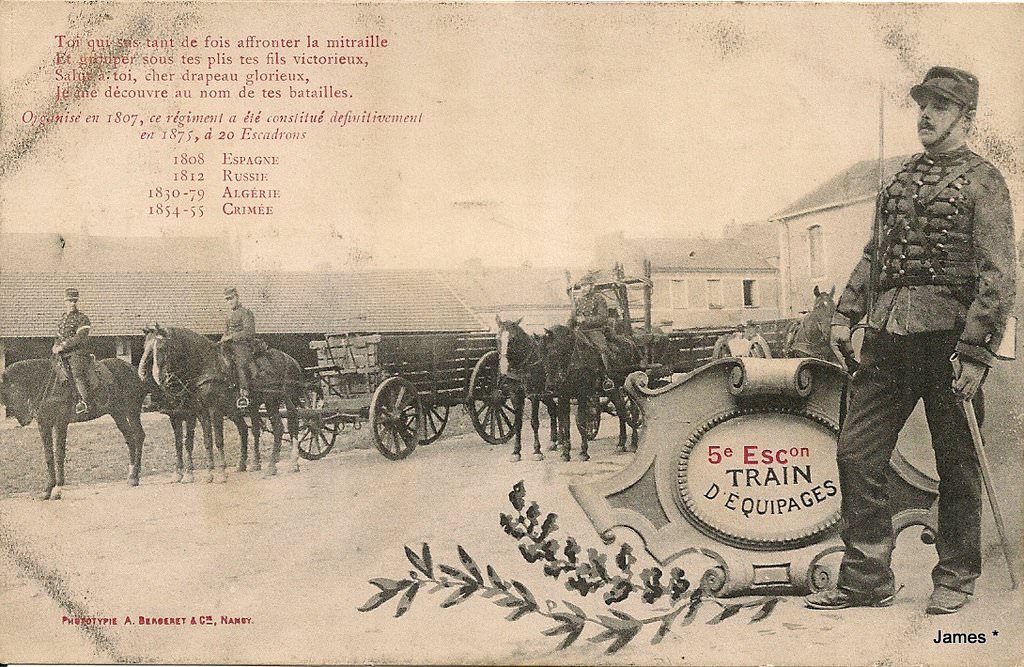 Toi qui sus tant de fois affronter la mitraille
Et grouper sous tes plis tes fils victorieux,
Salut à toi, cher drapeau glorieux,
Je me découvre au nom de tes batailles.
Organisé en 1807, ce régiment a été constitué definitivement
en 1875, à 20 Escadrons
1808 ESPAGNE
1812 RUSSIE
1830-79 ALGÉRIE
1854-55 CRIMÉE
5e Escon
TRAIN
D'ÉQUIPAGES
PHOTOTYPIE A. BERGERET & Cie, NANCY.
James *